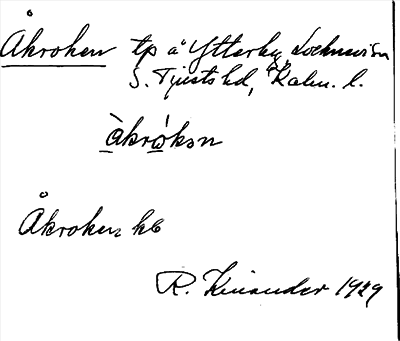 Åkroken tp å Ytterby, Locknevi sn
S. Tjusts hd, Kalm. l.
àkrókən
Åkroken kb
R. Kinander 1929